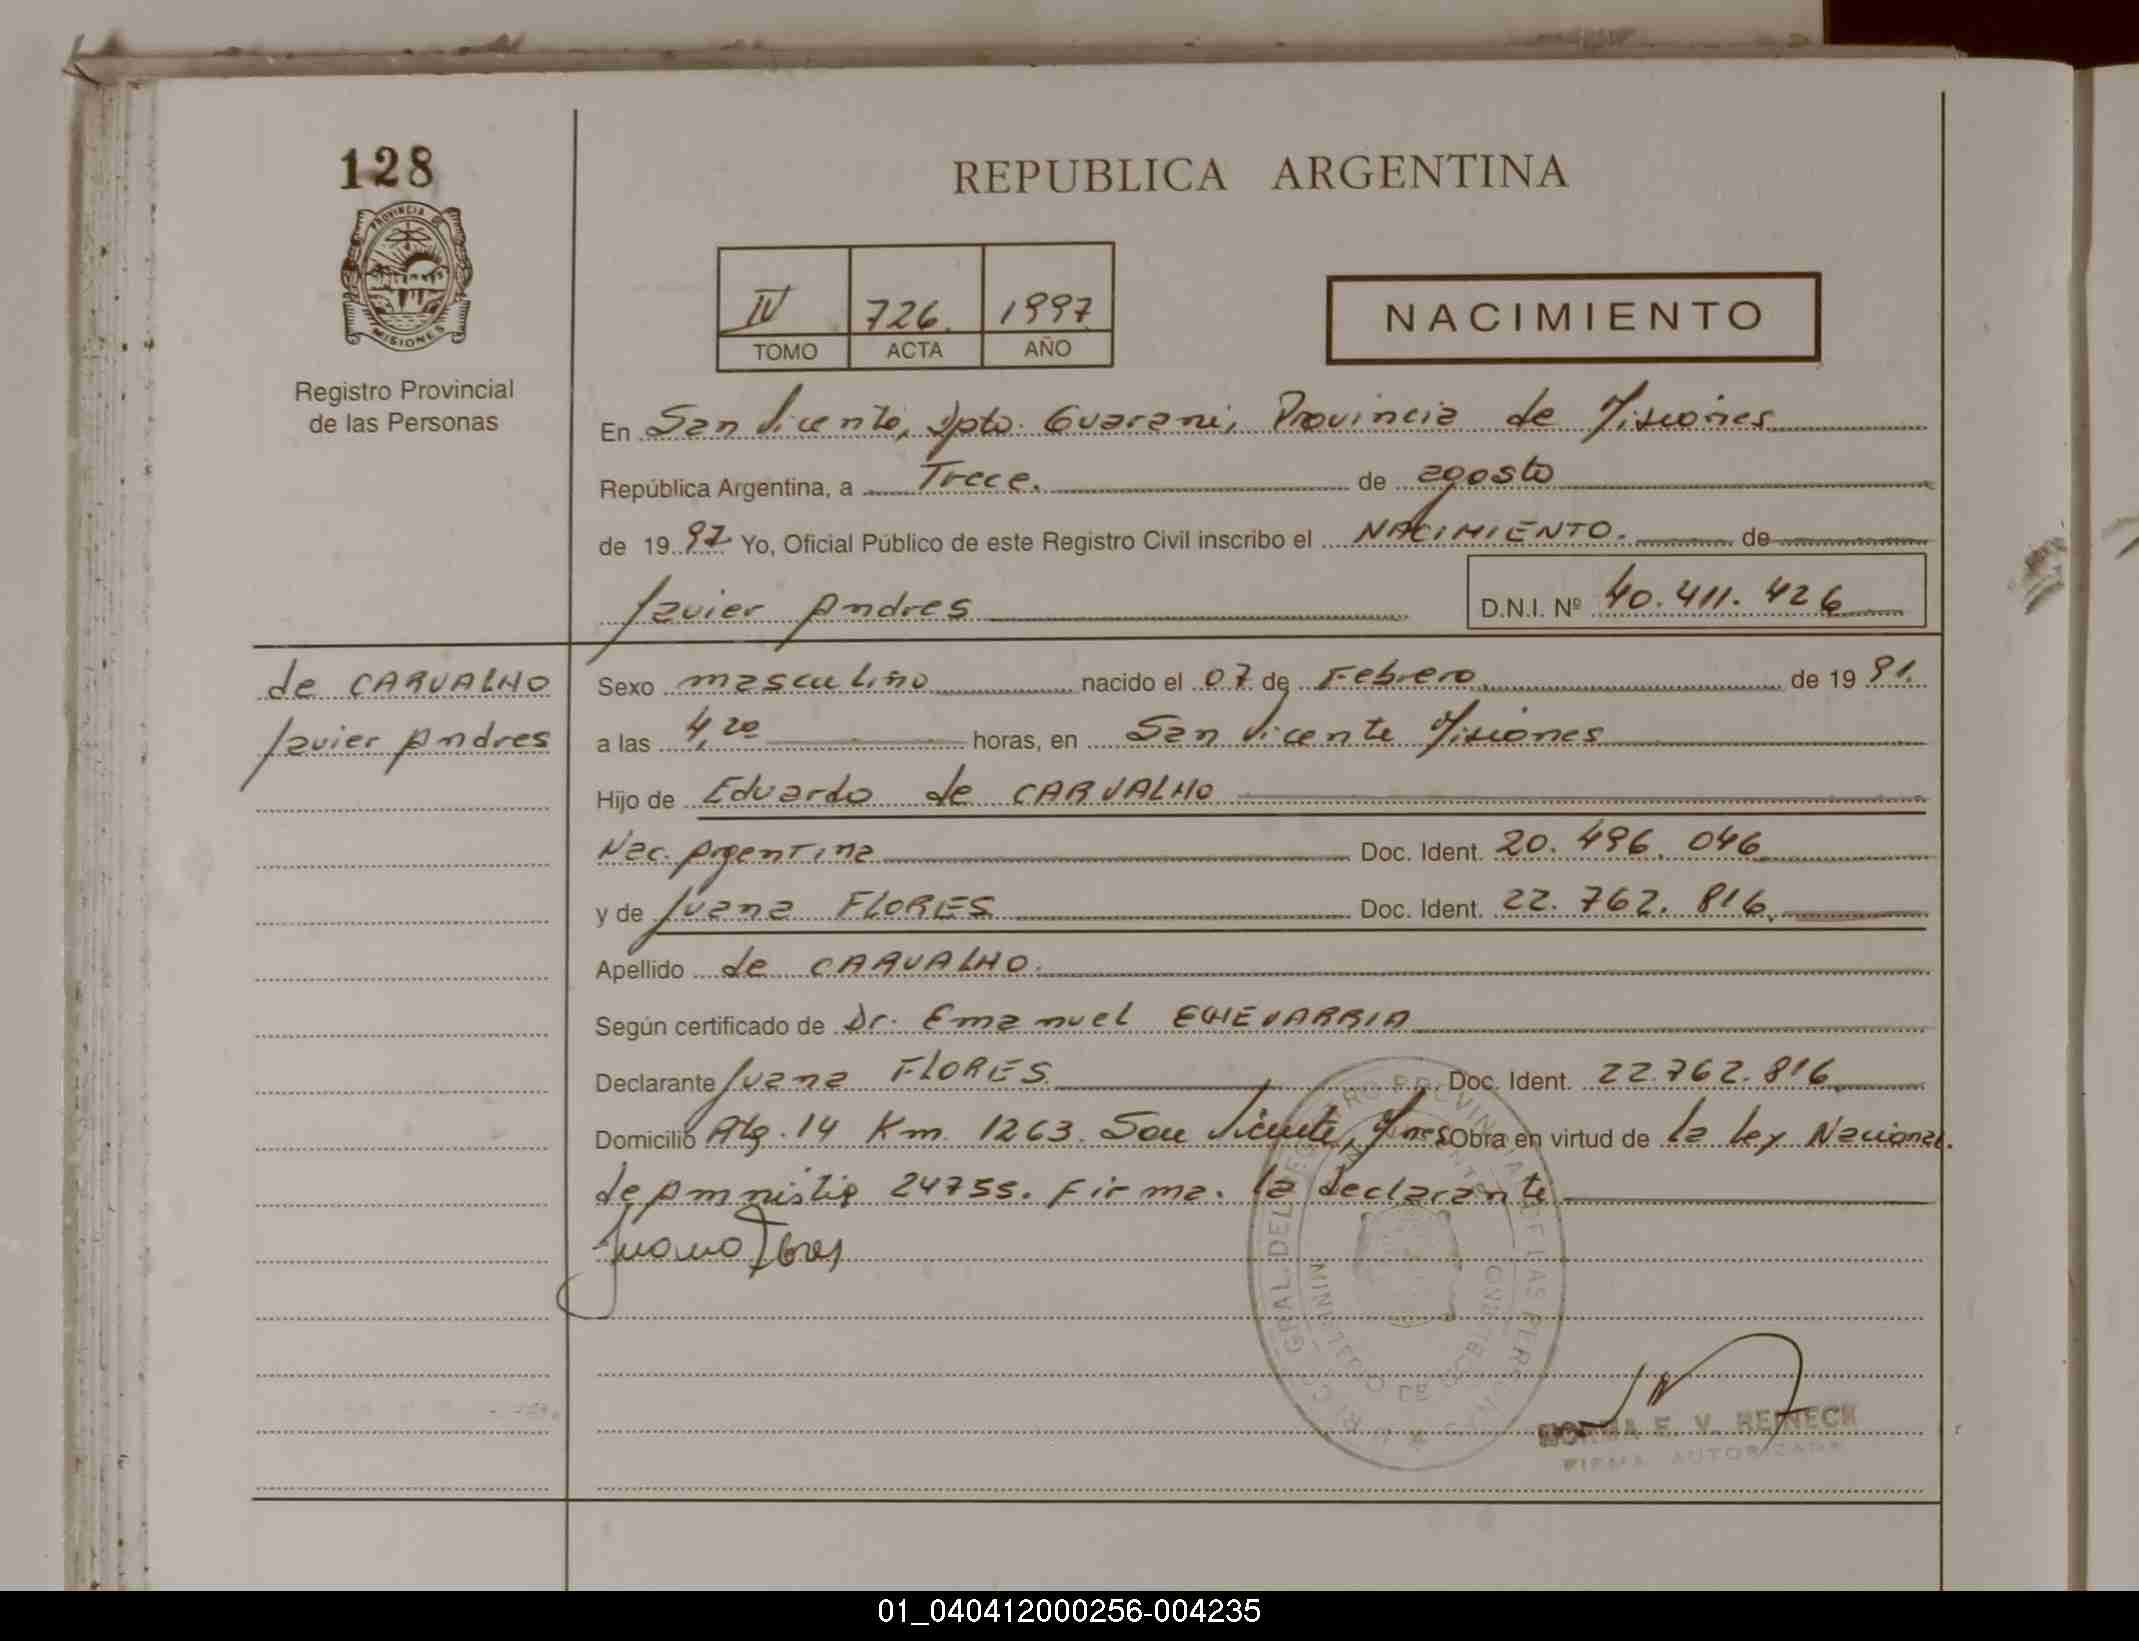 128
PROVINCIA DE
MISIONES
Registro Provincial
de las Personas
REPUBLICA ARGENTINA
IV 726. 1997
TOMO ACTA AÑO
NACIMIENTO
En San Vicente, Dpto. Guarani, Provincia de Misiones
República Argentina, a Trece. de agosto
de 19 97 Yo, Oficial Público de este Registro Civil inscribo el NACIMIENTO. de
Javier Andres D.N.I. Nº 40.411.426
de CARVALHO
Javier Andres
Sexo masculino nacido el 07 de Febrero de 19 91.
a las 4,20 horas, en San Vicente Misiones
Hijo de Eduardo de CARVALHO
Nac. Argentina Doc. Ident. 20.496.046
y de Juana FLORES Doc. Ident. 22.762.816.
Apellido de CARVALHO.
Según certificado de Dr. Emanuel ECHEVARRIA
Declarante Juana FLORES Doc. Ident. 22.762.816
Domicilio 14 Km 1263. San Vicente, Mnes Obra en virtud de la Ley Nacional.
de Amnistia 24755. Firma. la declarante
Juana Flores
NORMA E. V. REINECK
FIRMA AUTORIZADA
01_040412000256-004235